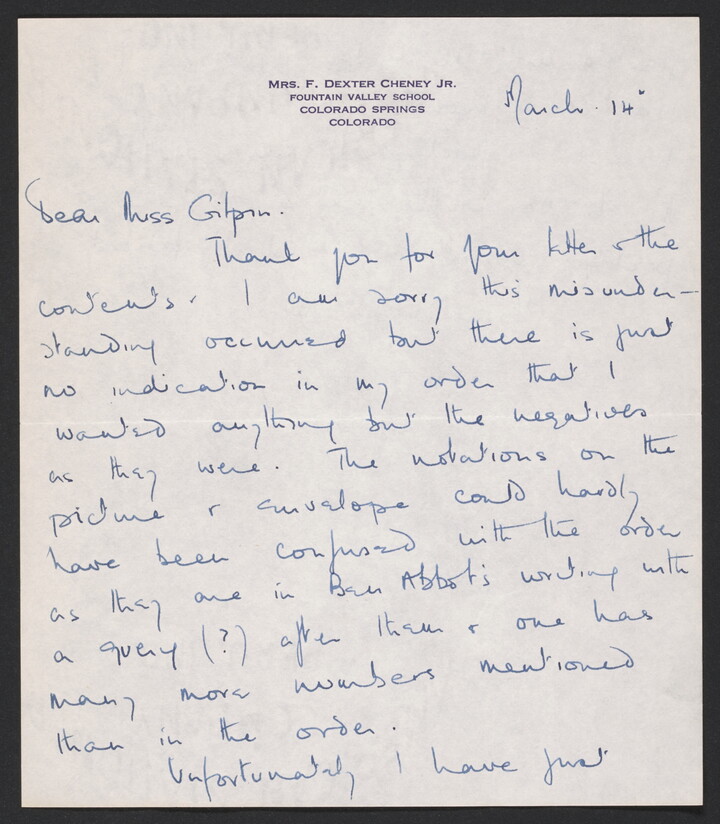 MRS. F. DEXTER CHENEY JR.
FOUNTAIN VALLEY SCHOOL
COLORADO SPRINGS
COLORADO
March. 14"
Dear Miss Gilpin.
Thank you for your letter & the
contents. I am sorry this misunder-
standing occurred but there is just
no indication in my order that I
wanted anything but the negatives
as they were. The notations on the
picture & envelope could hardly
have been confused with the order
as they are in Ben Abbot's writing with
a query (?) after them & one has
many more numbers mentioned
than in the order.
Unfortunately I have just